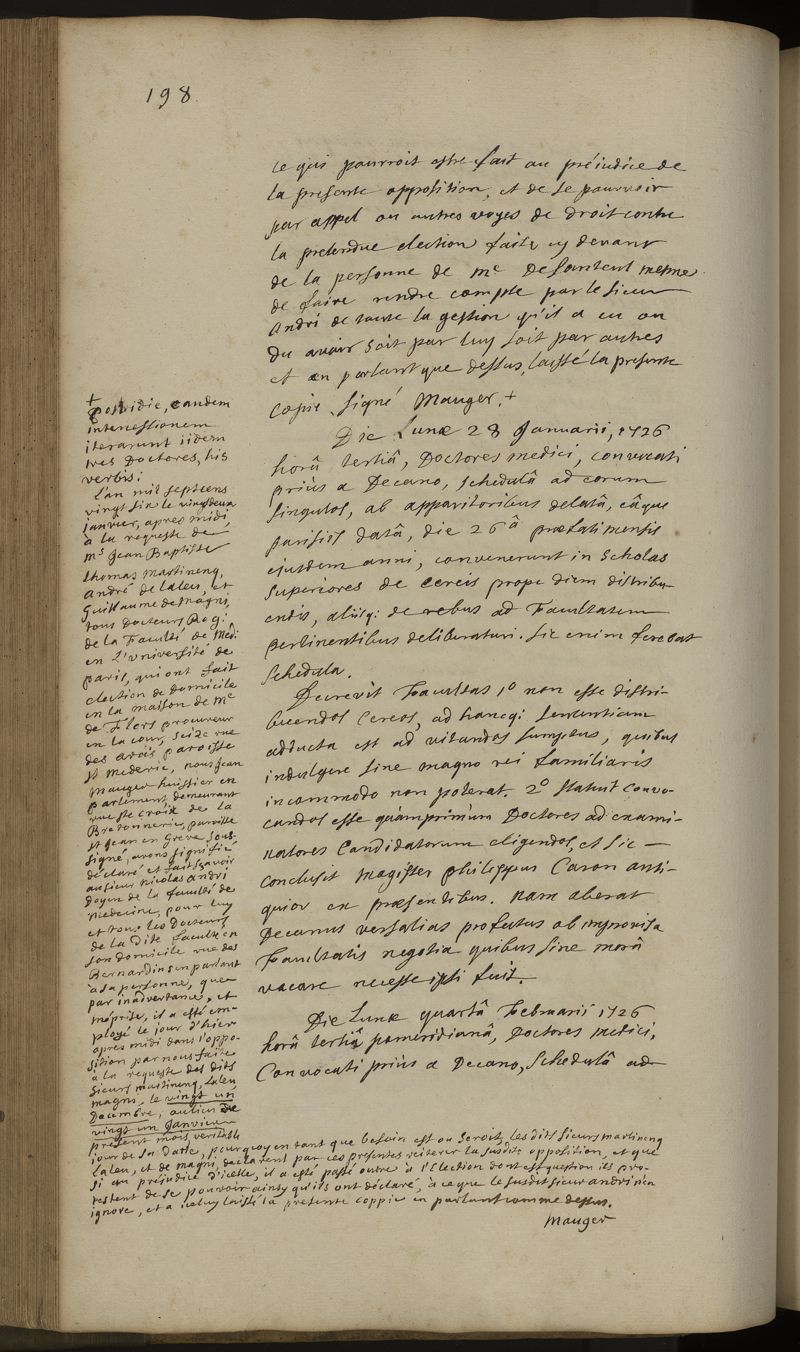 198
ce qui pourroit estre fait au préiudice de
la presente opposition, et de se pourvoir
par appel ou autres voyes de droit contre
la pretendue election faite cy devant
de la personne de Me mesme
de faire rendre compte par le sieur
André de toute la gestion qu'il a eu ou
du avoir soit par luy soit par autres
et en parlant que dessus, laissé la presente
copie, signé Mauger. +
Die Lunæ 28 Januarii, 1726
horâ tertiâ, Doctores medici, convocati
priùs a Decano, schedulâ ad eorum
singulos, ab apparitoribus delatâ, eâque
parisiis datâ, die 26â præfati mensis
ejusdem anni, convenerunt in scholas
superiores de cereis prope diem distribu
endis, aliisq; de rebus ad Facultatem
pertinentibus deliberaturi. sic enim ferebat
schedula.
Decrevit Facultas 1o non esse distri-
buendos cereos, ad hancq; sententiam
adducta est ad vitandos sumptus, quibus
indulgere sine magno rei familiaris
incommodo non poterat. 2o statuit convo-
candos esse quàmprimùm Doctores ad exami-
natores candidatorum eligendos, et sic —
conclusit magister philippus Caron anti-
quior ex præsentibus. nam aberat
Decanus versalias profectus ob improvisa
Facultatis negotia quibus sine morâ
vacare necesse ipsi fuit.
Die Lunæ quartâ Februarii 1726
horâ tertiâ pomeridianâ, Doctores medici,
Convocati priùs a Decano, schedulâ ad
+
Postridie, eandem
intercessionem
iterarunt iidem
tres Doctores, his
verbis:
L'an mil septcens
vingt six le vingtdeux
janvier, apres midi,
à la requeste de
ms Jean Baptiste
thomas martineng,
andré de laleu, et
Guillaume de magni,
tous docteurs Reg:
de la Faculté de Med:
en l'université de
paris, qui ont fait
election de domicile
en la maison de me
de Flers procureur
en la cour, seize rue
des arcis paroisse
st mederic, nous jean
mauger huissier en
parlement, demeurant
rue ste croix de la
Bretonnerie, paroisse
st jean en Greve sous-
signé, avons signifié
déclaré et fait sçavoir
au sieur nicolas andri
doyen de la faculté de
medecine, pour luy
et tous les docteurs
de la dite faculté en
son domicile rue des
Bernardins en parlant
à sa personne, que
par inadvertance, et
méprise, il a esté em-
ployé le jour d'hier
apres midi dans l'oppo-
sition par nous faite
à la requeste des dits
sieurs martineng, Laleu,
magni, le vingt un
Decembre, au lieu de
vingt un janvier
présent mois, veritable
jour de sa datte, pourquoy en tant que besoin est ou seroit, les dits sieurs martineng
Laleu, et de magni, declarent par ces présentes reiterer la susdite opposition, et que
si au préjudice d'icelle, il a esté passé outre à l'élection dont est question ils pro-
testent de se pourvoir ainsy qu'ils ont déclaré, à ce que le susdit sieur andri n'en
ignore, et a iceluy laissé la presente coppie en parlant comme dessus.
Mauger